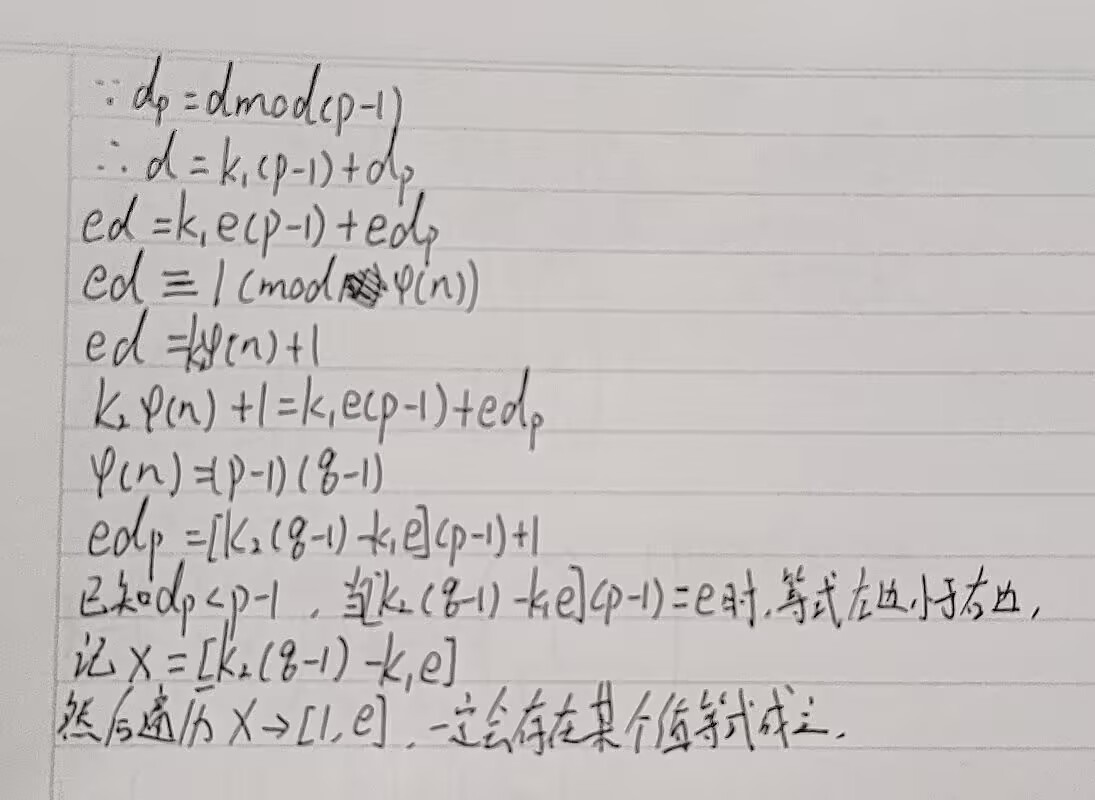 ∵ dp = d mod (p-1)
∴ d = k₁(p-1) + dp
ed = k₁e(p-1) + edp
ed ≡ 1 (mod φ(n))
ed = k₂φ(n) + 1
k₂φ(n) + 1 = k₁e(p-1) + edp
φ(n) = (p-1)(q-1)
edp = [k₂(q-1) - k₁e](p-1) + 1
已知dp < p-1，当[k₂(q-1) - k₁e](p-1) = e时，等式左边小于右边，
记 X = [k₂(q-1) - k₁e]
然后遍历 X → [1, e]，一定会存在某个值等式成立．